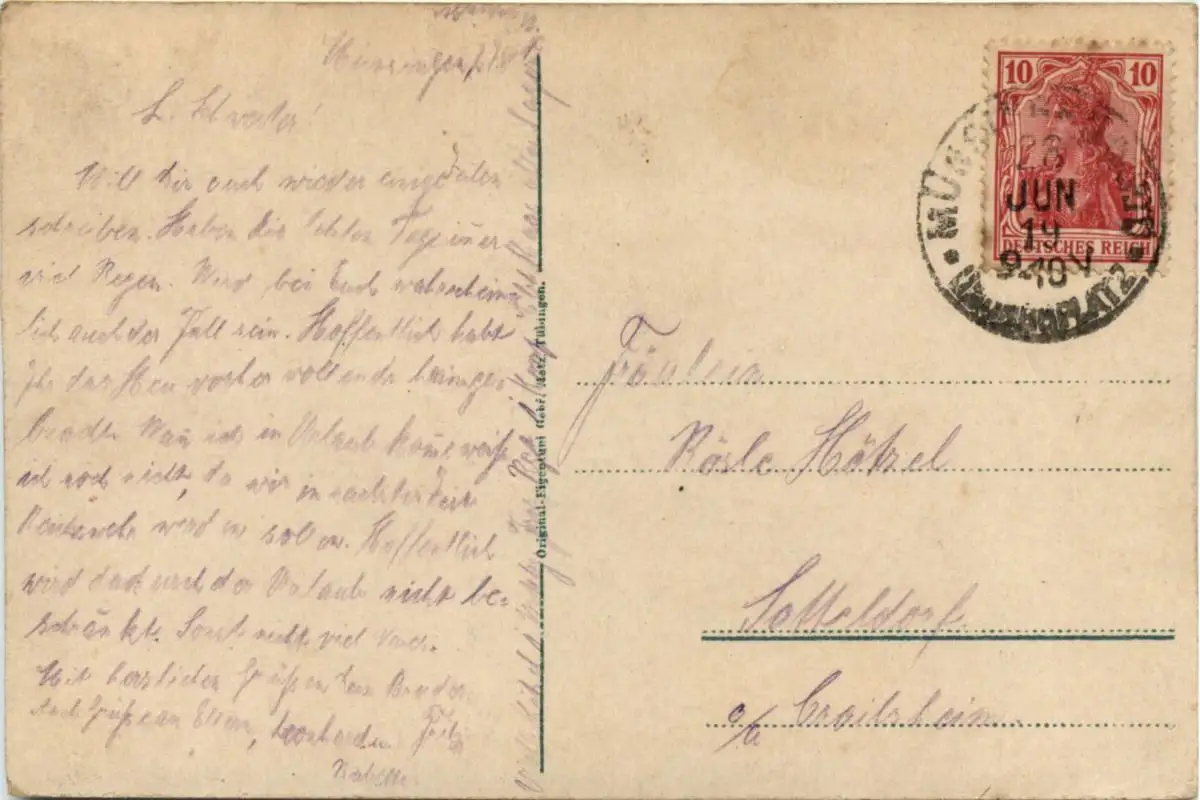 Münsingen
L. Schwester!
Will Dir auch wieder einige Zeilen
schreiben. Haben die letzten Tage imer
viel Regen. Wird bei Euch wahrschein
lich auch der Fall sein. Hoffentlich habt
Ihr das Heu vorher vollends heimge
bracht. Wan ich in Urlaub kome weiß
ich noch nicht, da wir in nächster Zeit
Reichswehr werden sollen. Hoffentlich
wird dadurch der Urlaub nicht be-
schränkt. Sonst nicht viel Neues.
Mit herzlichen Grüßen Dein Bruder
Auch Grüße an Eltern, Fritz
Babette.
Original-Eigentum Gebr. Metz, Tübingen.
10 10
DEUTSCHES REICH
MÜNSINGEN
28
JUN
19
9-10V
ÜBUNGSPLATZ
Fräulein
Rösle Hötzel
Satteldorf
o/a Crailsheim.